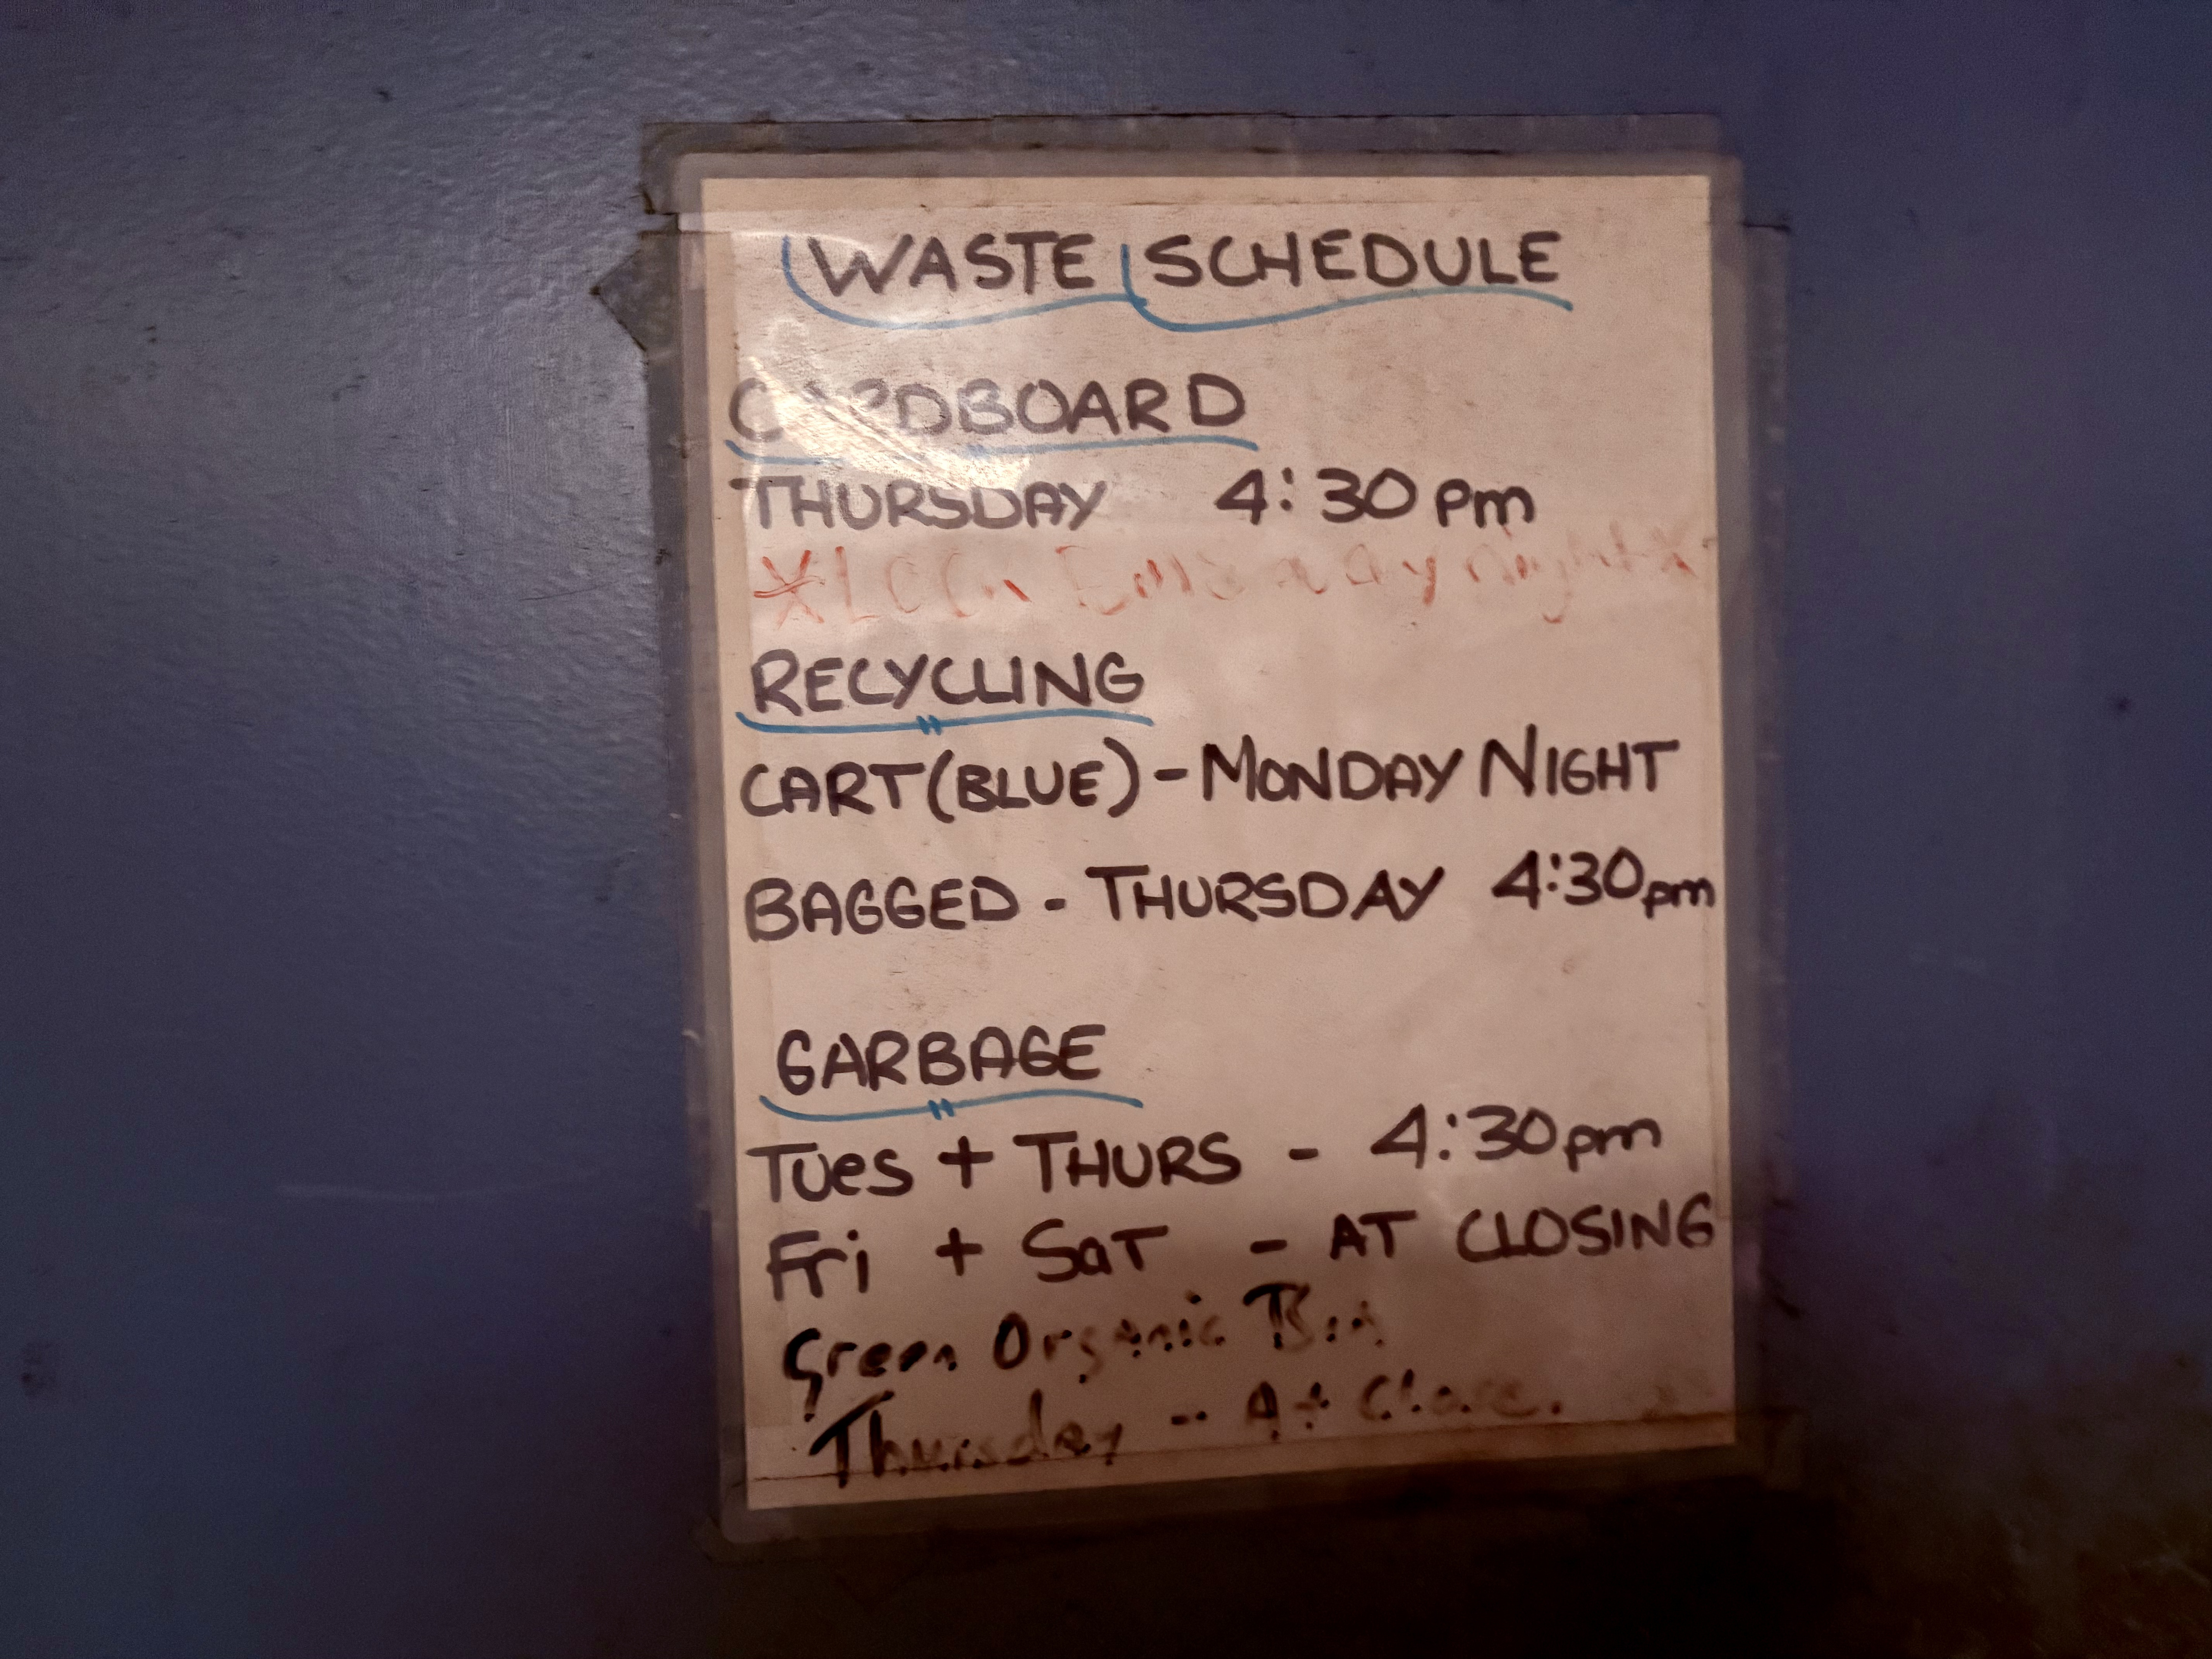 WASTE SCHEDULE
CARDBOARD
THURSDAY 4:30 pm
RECYCLING
CART (BLUE) - MONDAY NIGHT
BAGGED - THURSDAY 4:30pm
GARBAGE
Tues + THURS - 4:30pm
Fri + SaT - AT CLOSING
Green Organic Bin
Thursday - At Close.